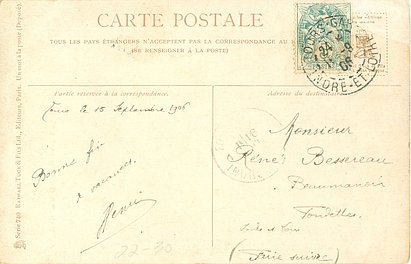 CARTE POSTALE
TOUS LES PAYS ÉTRANGERS N'ACCEPTENT PAR LA CORRESPONDANCE AU
(SE RENSEIGNER À LA POSTE)
INDRE-ET-LOIRE
Partie réservée à la correspondance.
Adresse du destinataire.
Tours le 15 Septembre 1906
Bonne fin
de vacances.
Henri
Monsieur
René Bessereau
Beaumanoir
Fondettes
Indre et Loire
(Faire suivre)
22-30
Série 740 RAPHAEL TUCK & FILS LTD., Editeurs, Paris. Un mot à la poste (Déposé)